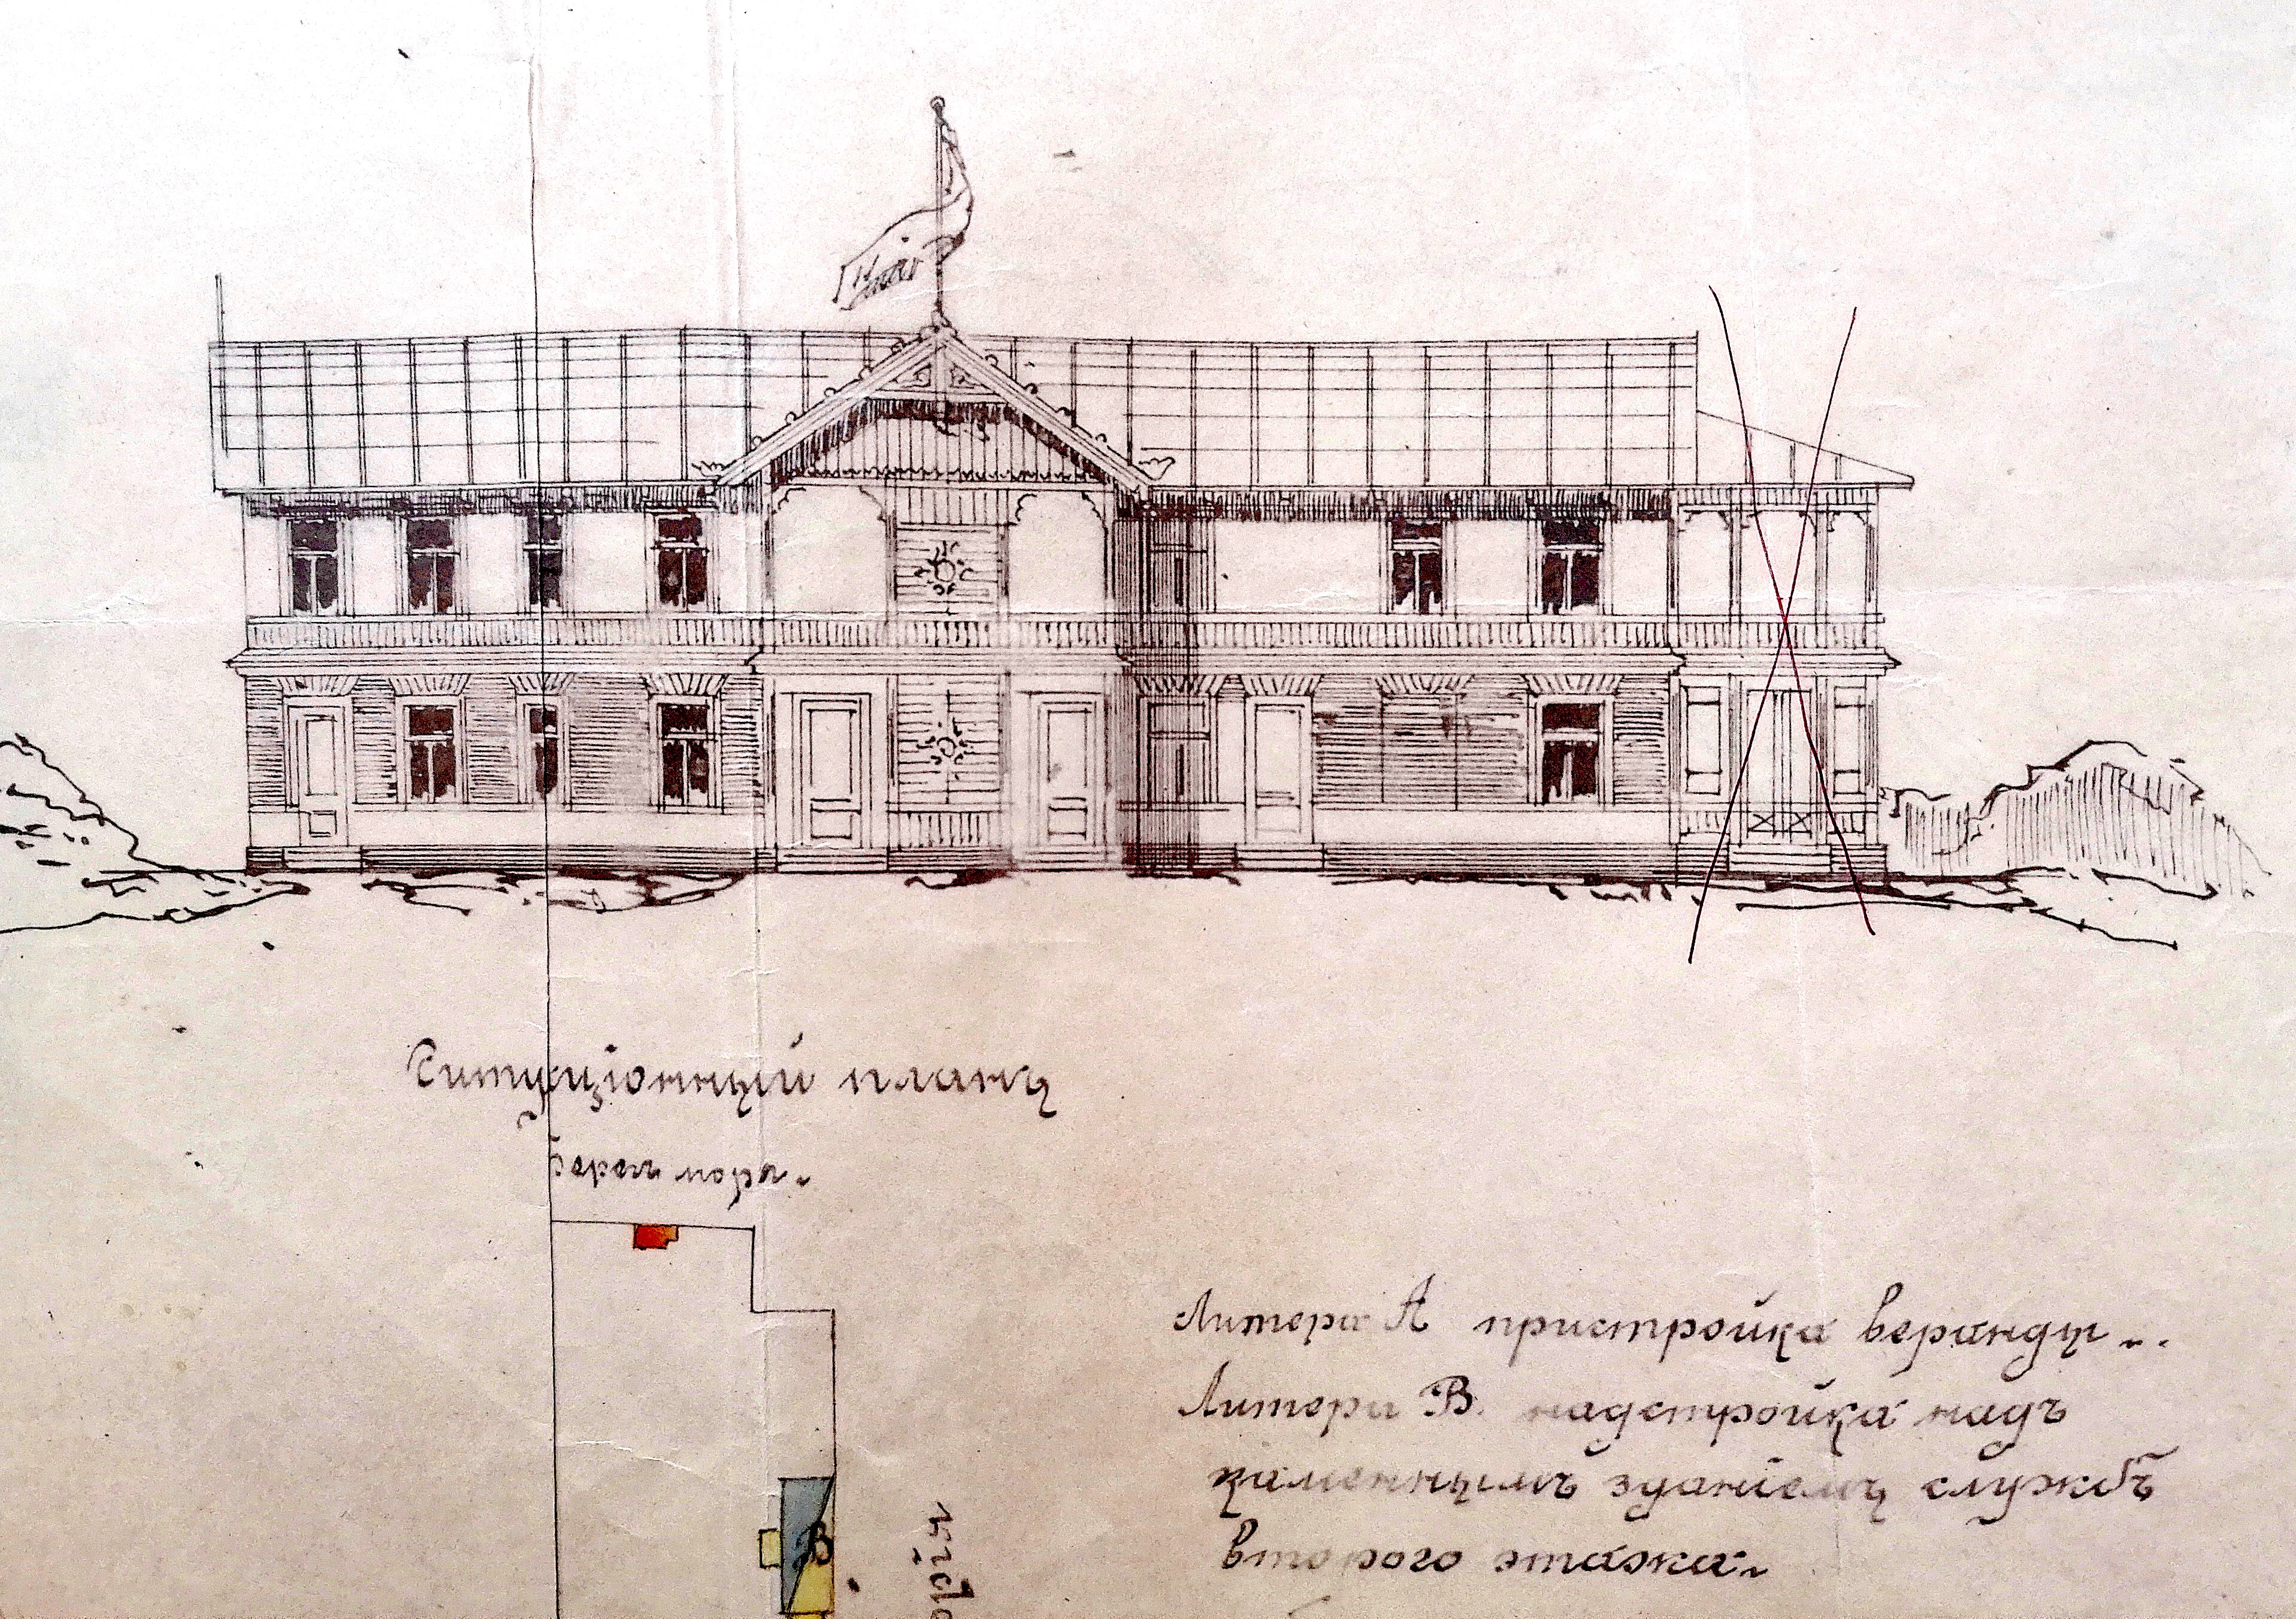 Ситуаціонный планъ
берегъ моря.
Литера А пристройка веранды.
Литера В. надстройка надъ
каменнымъ зданіемъ службъ
второго этажа.
В